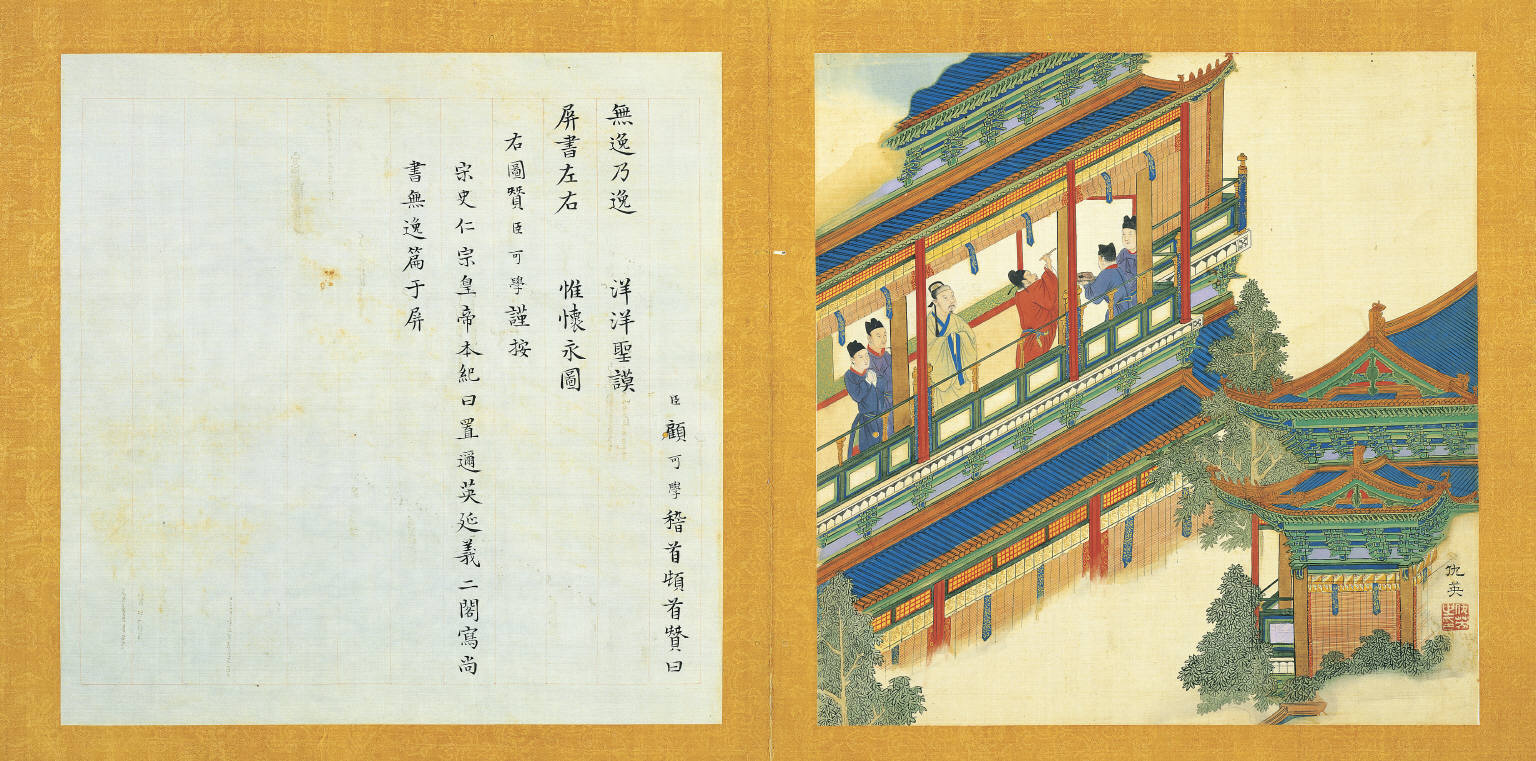 臣顧可學稽首頓首贊曰
無逸乃逸　洋洋聖謨
屏書左右　惟懷永圖
右圖贊臣可學謹按
宋史仁宗皇帝本紀曰置邇英延義二閣寫尚
書無逸篇于屏
仇英